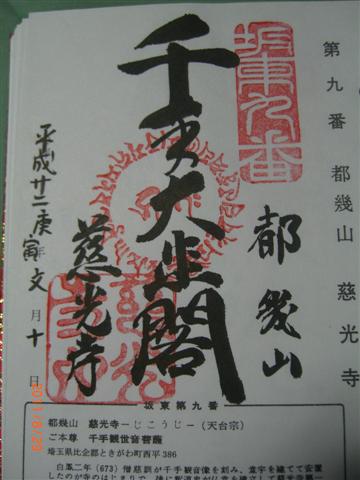 第九番 都幾山 慈光寺
坂東九番
都幾山
千手大悲閣
慈光寺
平成廿二庚寅年文月十日
坂東第九番
都幾山 慈光寺−じこうじ−(天台宗)
ご本尊 千手観世音菩薩
埼玉県比企郡ときがわ町西平386
白鳳二年(673)僧慈訓が千手観音像を刻み、堂宇を建てて安置
したのが寺のはじまりで、後に釈道忠が
2011/8/23